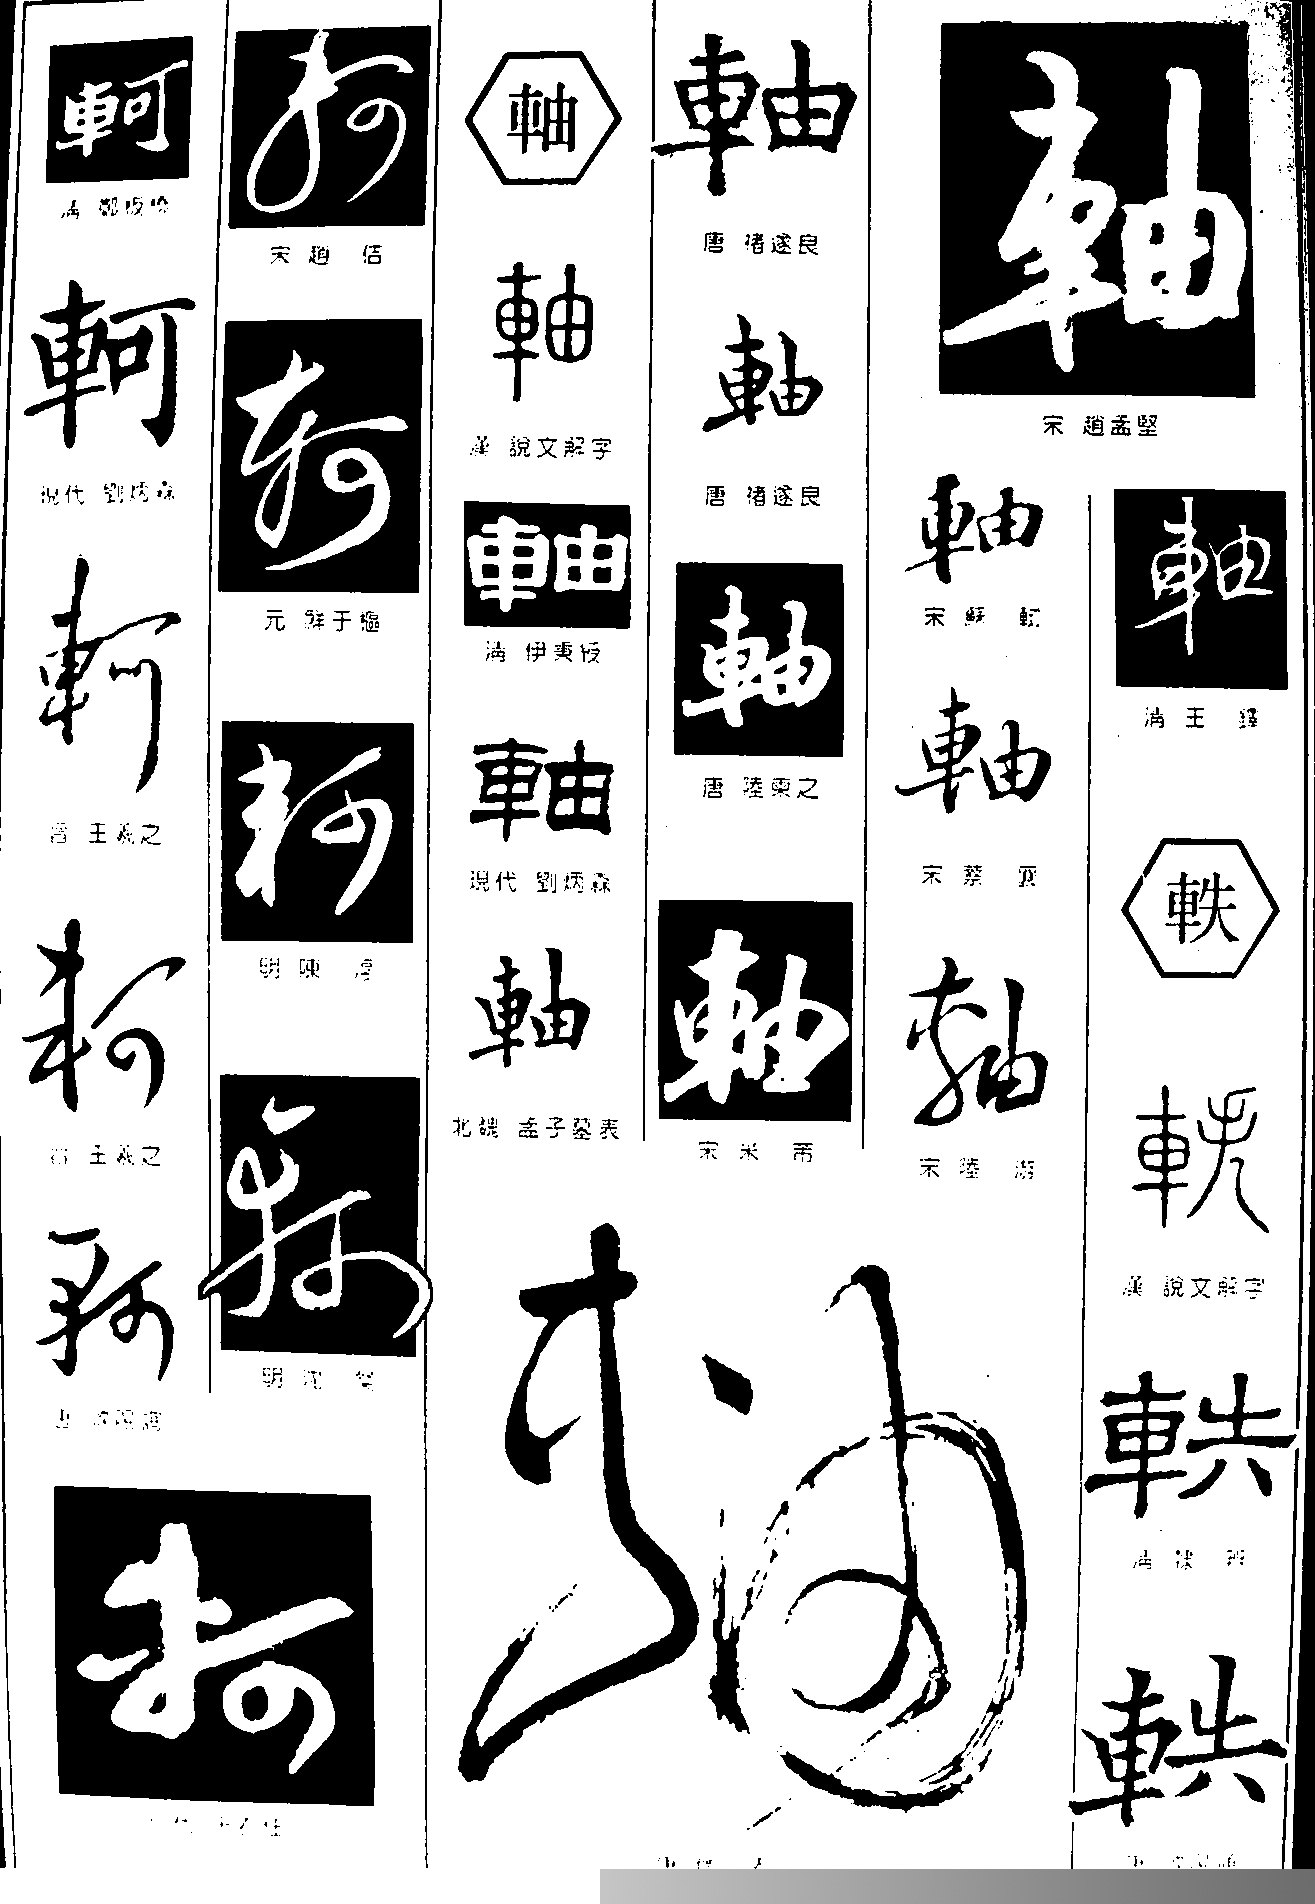 軻
清 鄭板橋
軻
現代 劉炳森
軻
晉 王羲之
軻
晉 王羲之
軻
唐 歐陽詢
軻
軻
宋 趙 佶
軻
元 鮮于樞
軻
明 陳 淳
軻
明 沈 粲
軸
軸
漢 說文解字
軸
清 伊秉綬
軸
現代 劉炳森
軸
北魏 孟子墓表
軸
唐 褚遂良
軸
唐 褚遂良
軸
唐 陸柬之
軸
宋 米 芾
軸
宋 趙孟堅
軸
宋 蘇 軾
軸
宋 蔡 襄
軸
宋 陸 游
軸
軸
清 王 鐸
軼
軼
漢 說文解字
軼
軼